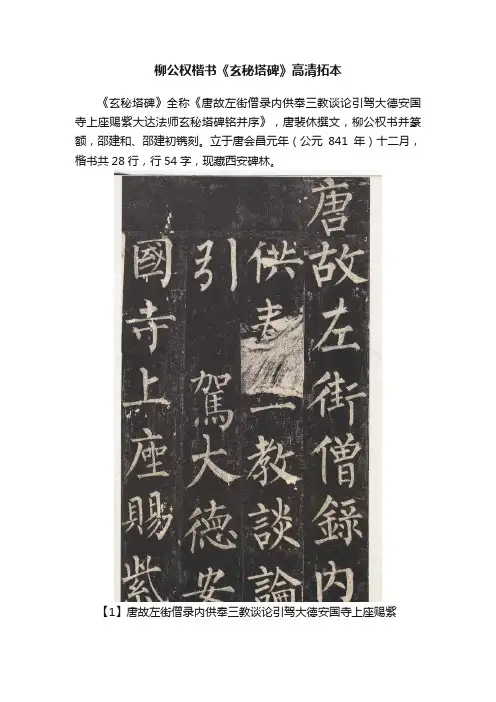 柳公权楷书《玄秘塔碑》高清拓本
《玄秘塔碑》全称《唐故左街僧录内供奉三教谈论引驾大德安国
寺上座赐紫大达法师玄秘塔碑铭并序》，唐裴休撰文，柳公权书并篆
额，邵建和、邵建初镌刻。立于唐会昌元年（公元 841 年）十二月，
楷书共28行，行54字，现藏西安碑林。
唐故左街僧錄内
供奉教談論
引駕大德安
國寺上座賜紫
【1】唐故左街僧录内供奉三教谈论引驾大德安国寺上座赐紫